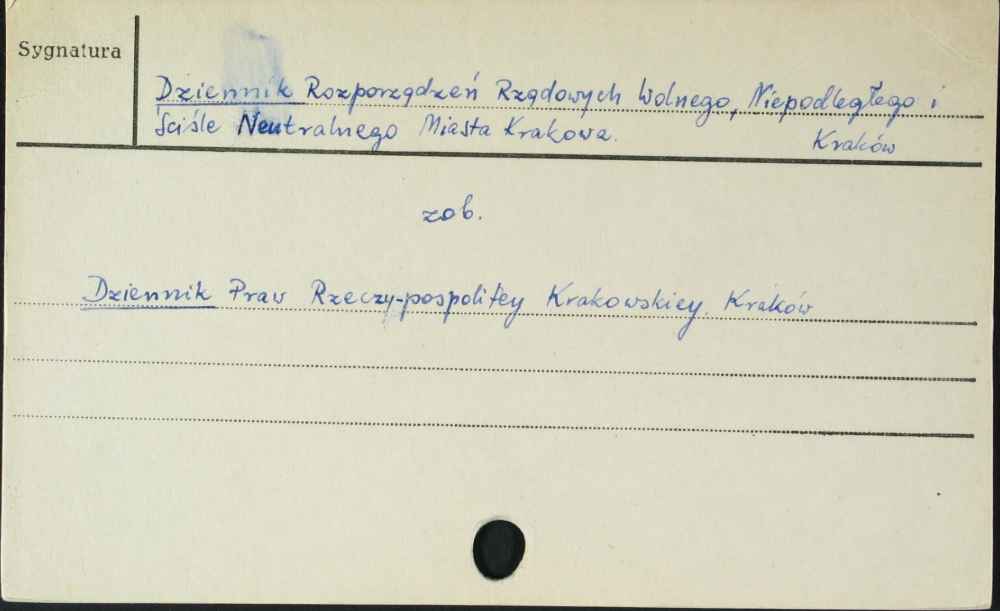 Sygnatura
Dziennik Rozporządzeń Rządowych Wolnego, Niepodległego i
Ściśle Neutralnego Miasta Krakowa. Kraków
zob.
Dziennik Praw Rzeczy-pospolitey Krakowskiey. Kraków